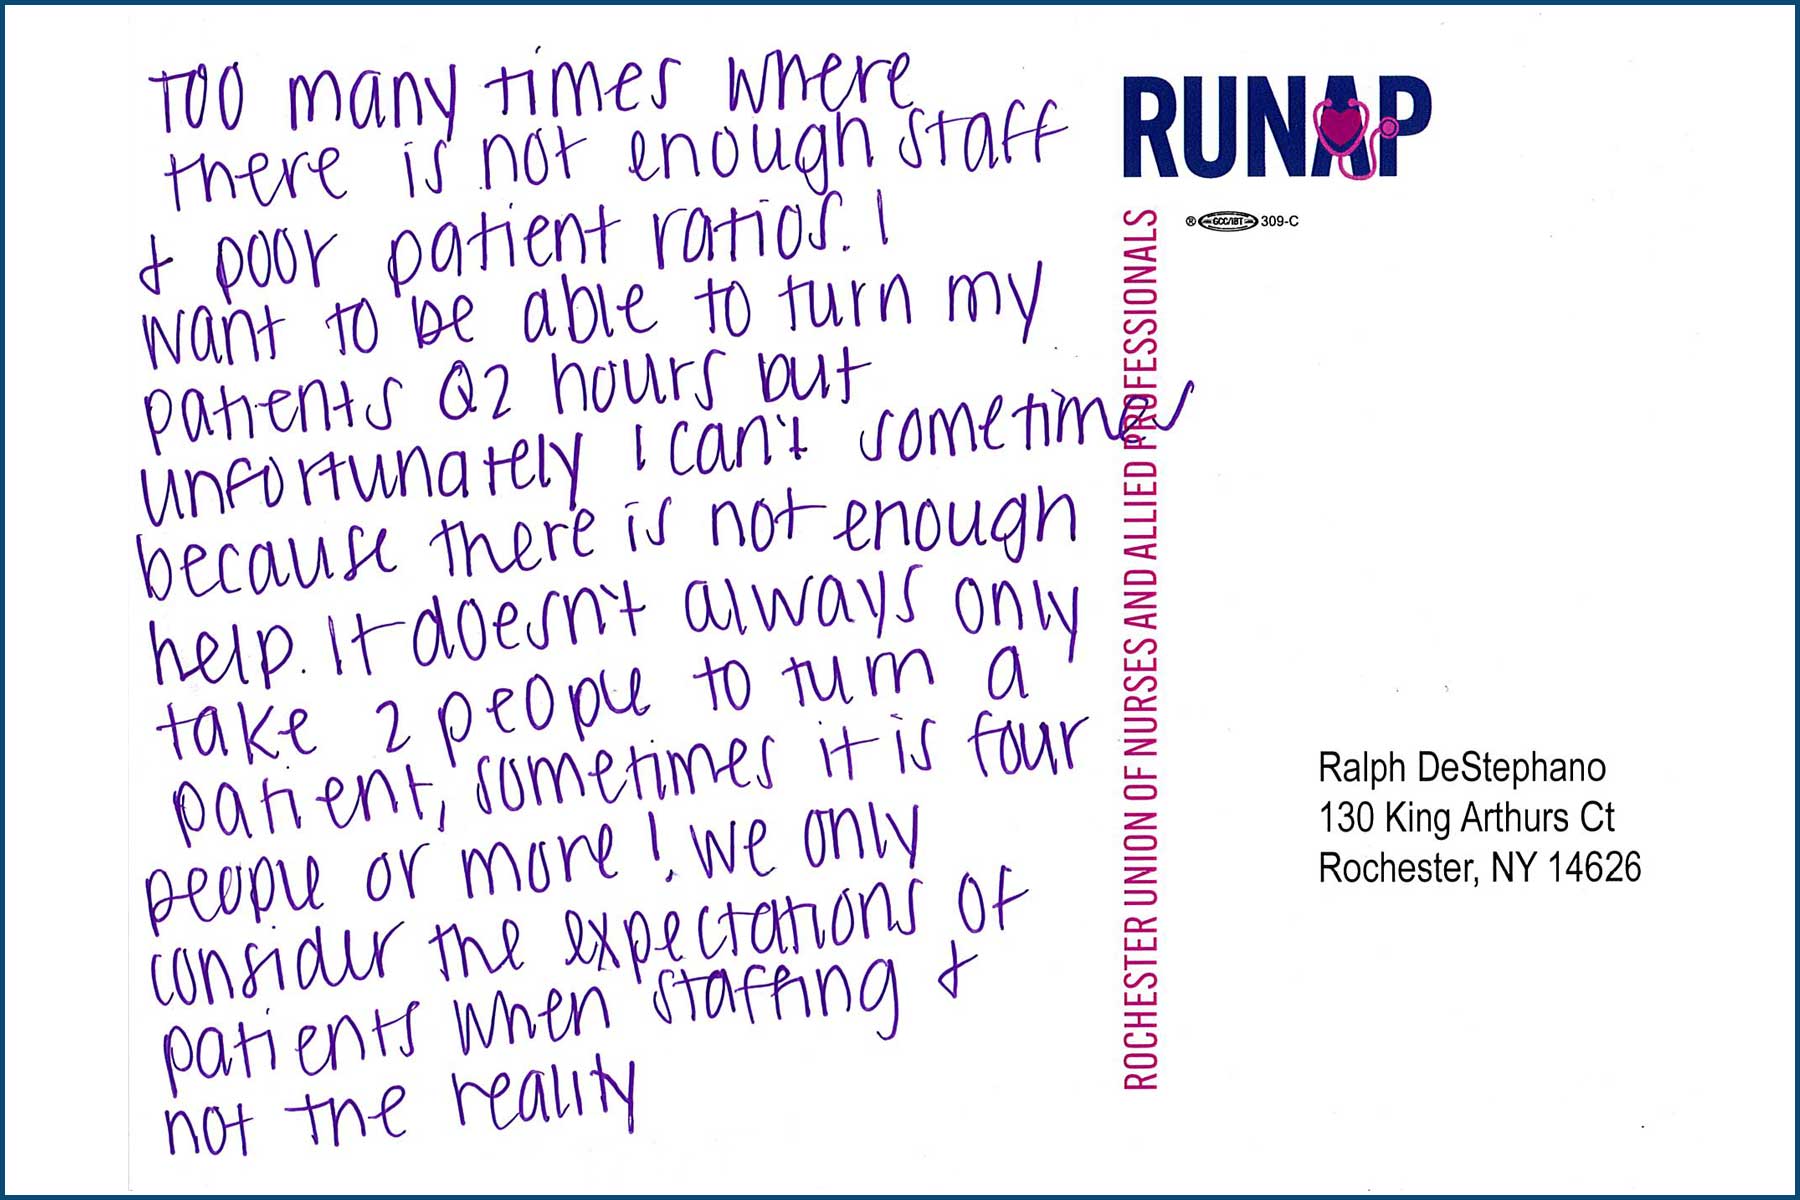 Too many times where
there is not enough staff
& poor patient ratios. I
want to be able to turn my
patients Q2 hours but
unfortunately I can't sometimes
because there is not enough
help. It doesn't always only
take 2 people to turn a
patient, sometimes it is four
people or more! We only
consider the expectations of
patients when staffing &
not the reality
RUNAP
® GCC/IBT 309-C
ROCHESTER UNION OF NURSES AND ALLIED PROFESSIONALS
Ralph DeStephano
130 King Arthurs Ct
Rochester, NY 14626